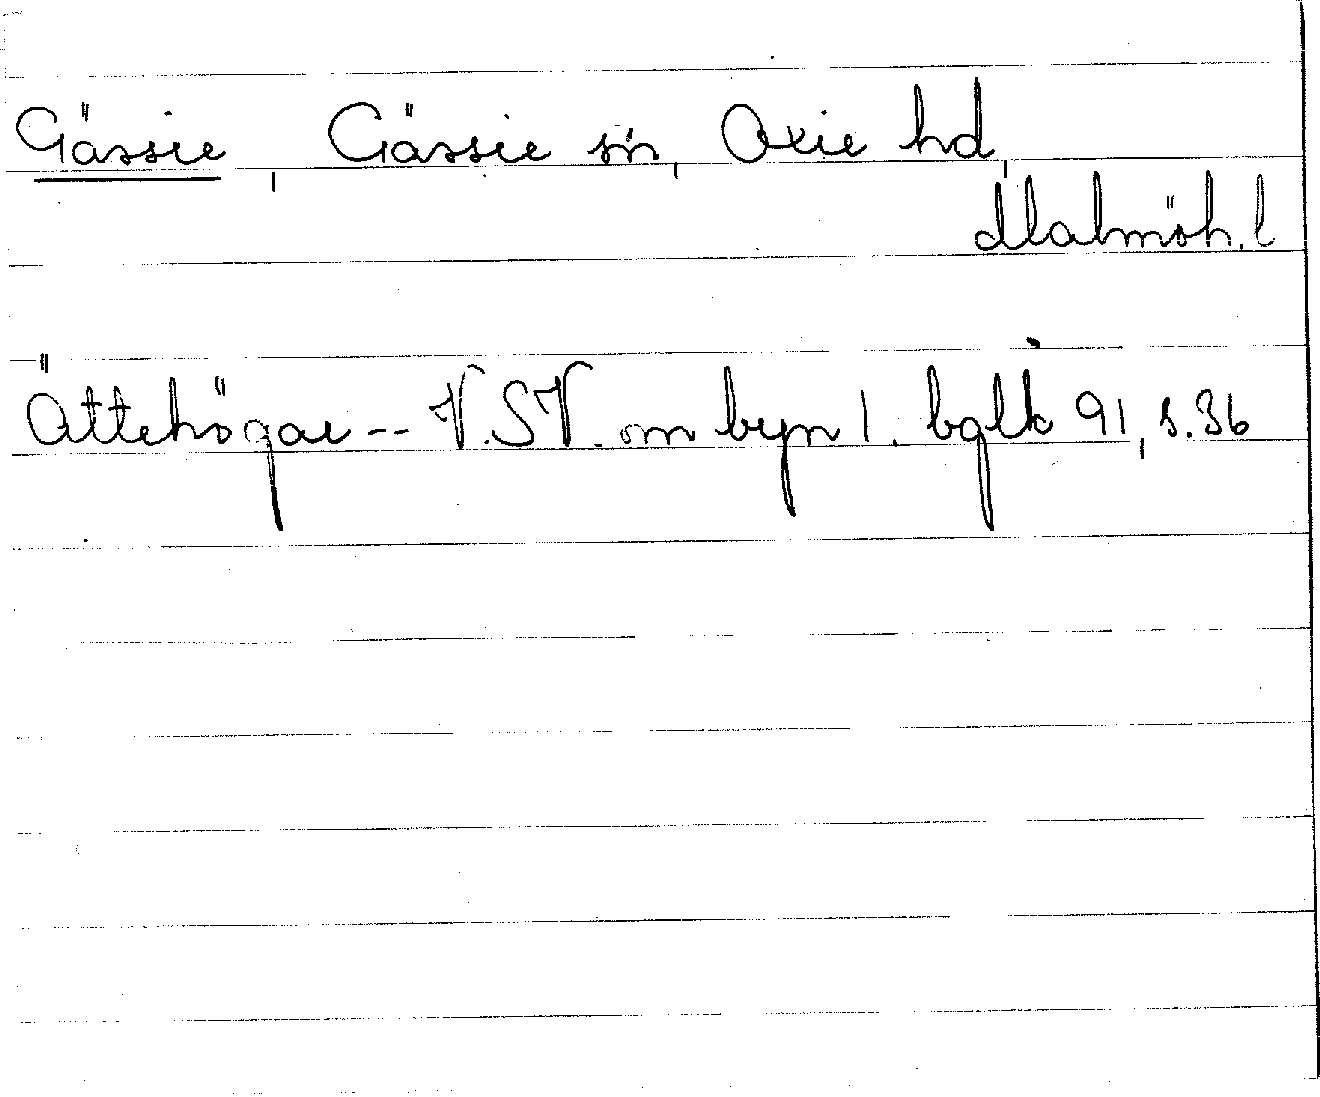 Gässie, Gässie sn, Oxie hd,
Malmöh. l
Ättehögar -- V. SV. om byn l. bglk 91, s. 36